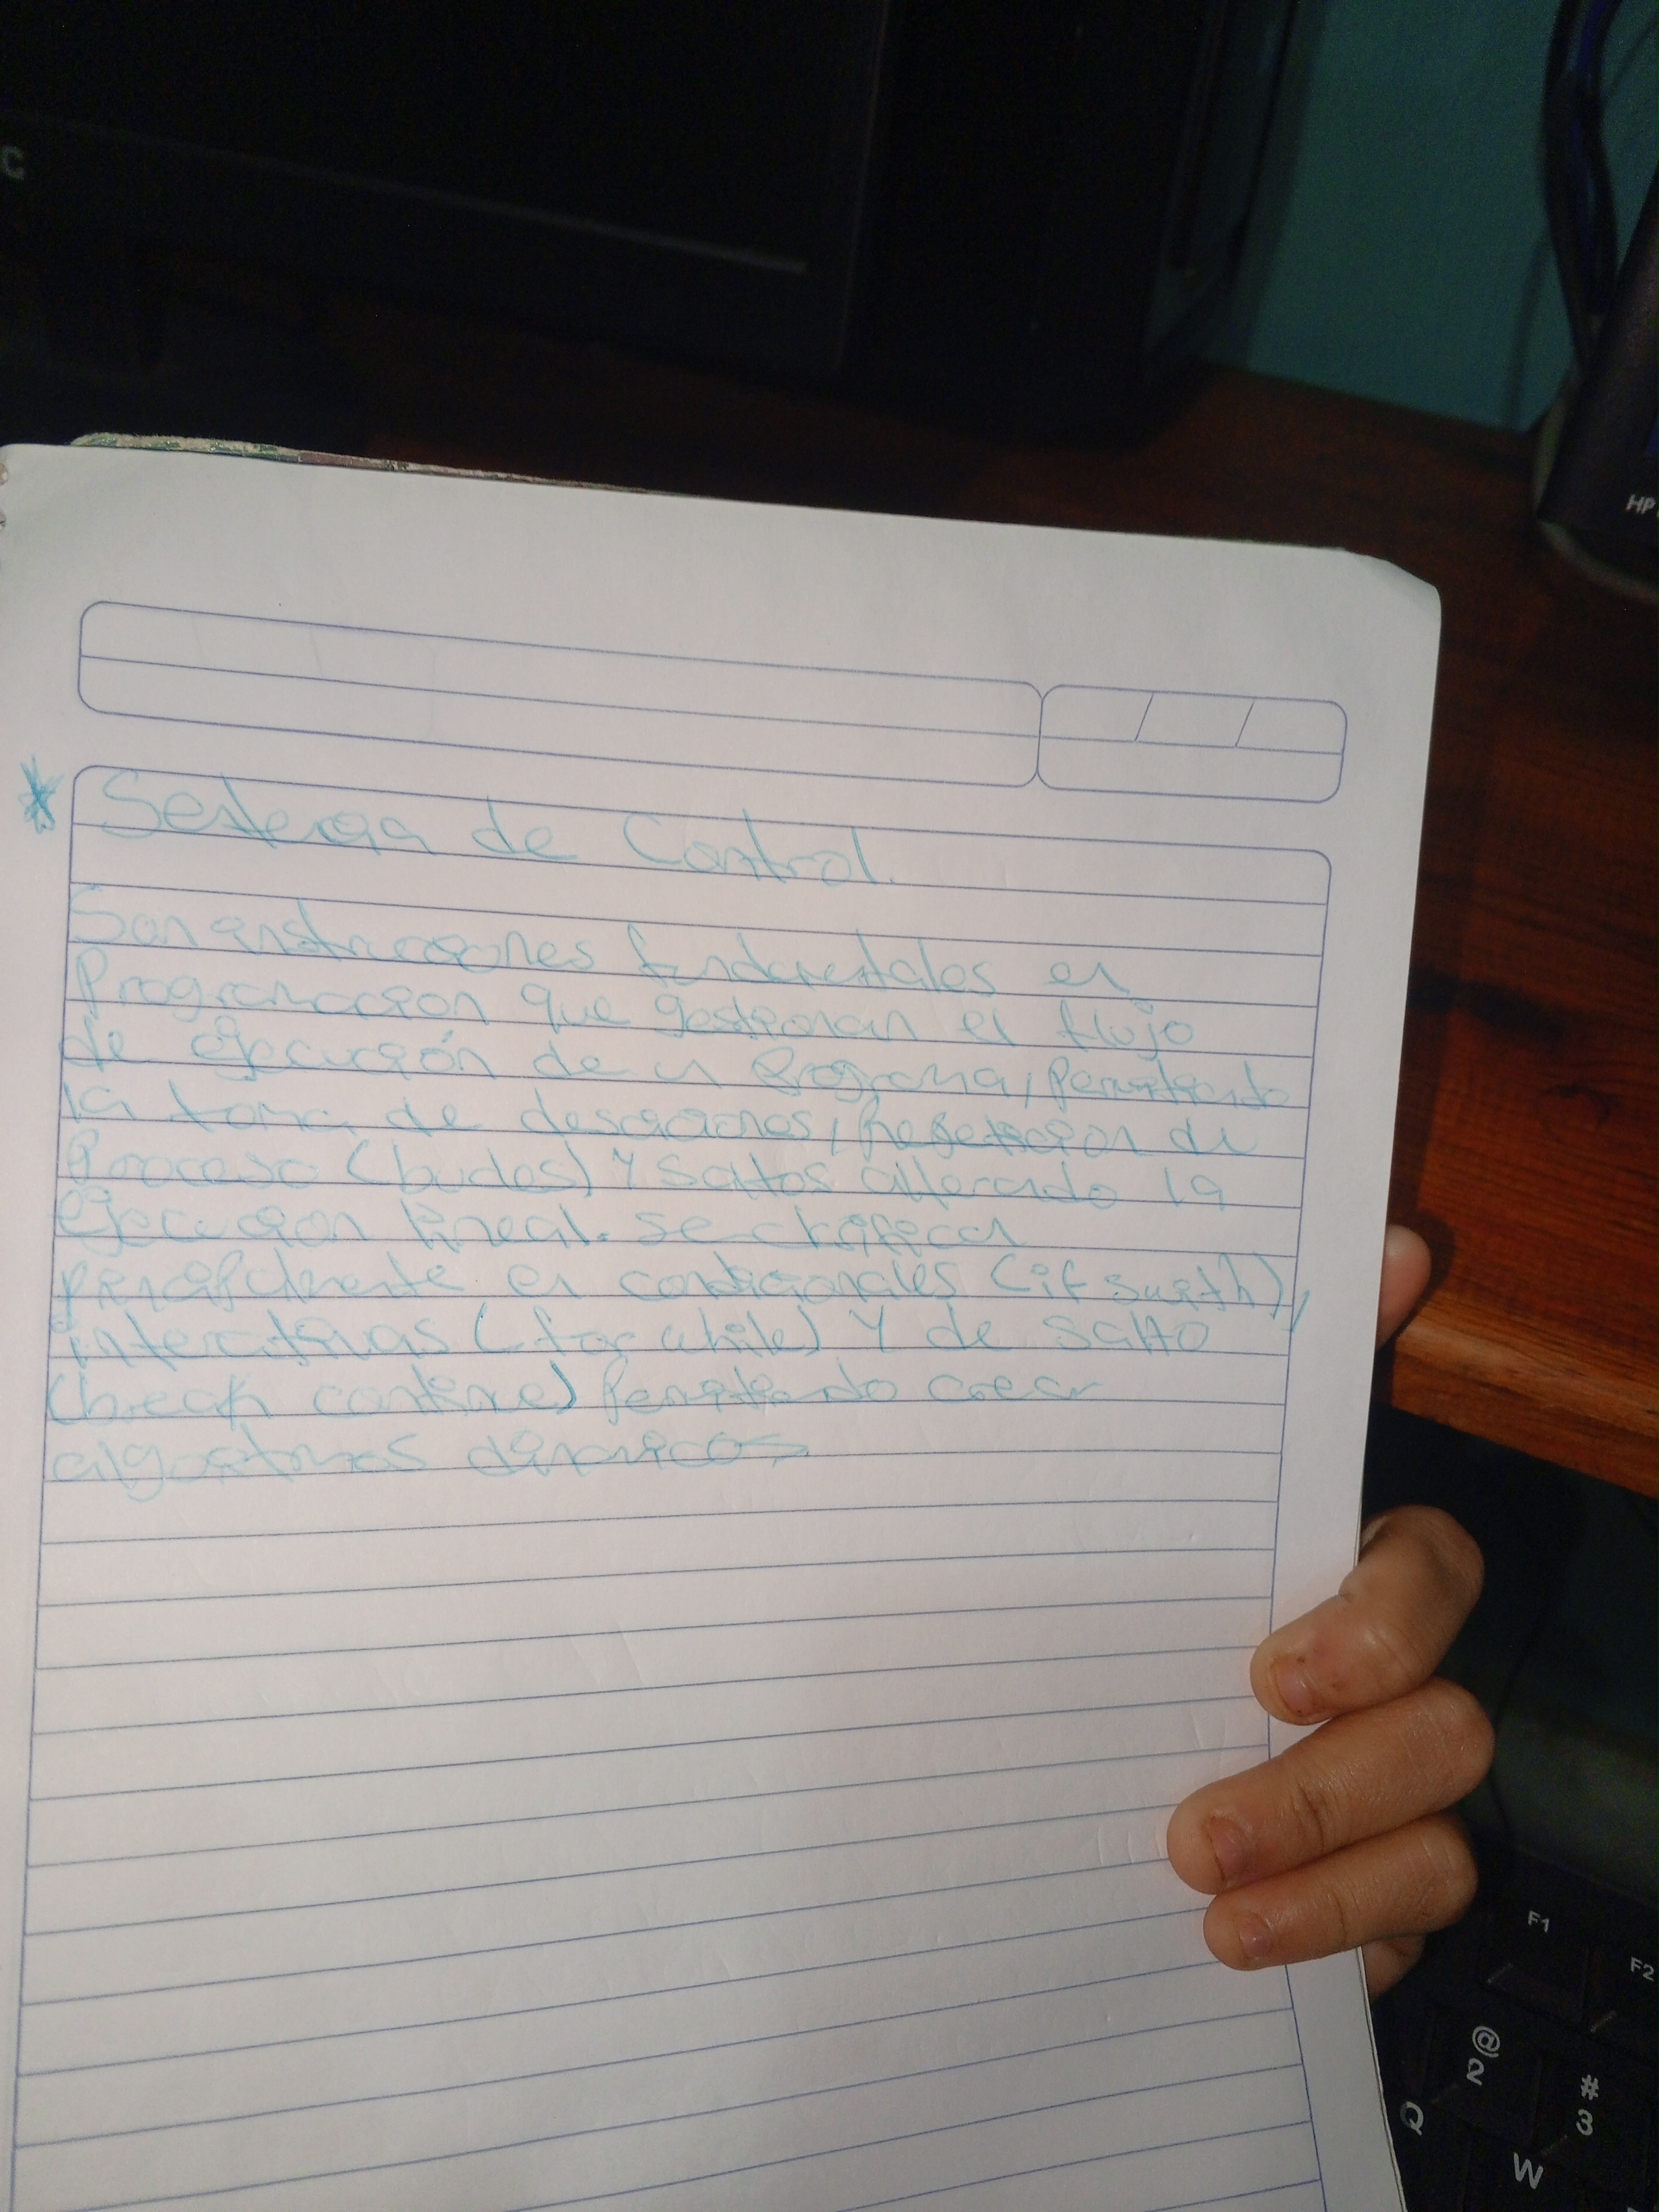 C
HP
* Sentencia de Control.
Son instrucciones fundamentales en
Programacion que gestionan el flujo
de ejecución de un Programa, Permitiendo
la toma de desiciones, Repeticion de
Proceso (bucles) y saltos alterando la
ejecucion lineal. se clasifican
principalmente en condicionales (if swith),
interativas (for while) Y de salto
(break continue) Permitiendo crear
algoritmos dinamicos
F1
F2
@
2
#
3
Q
W